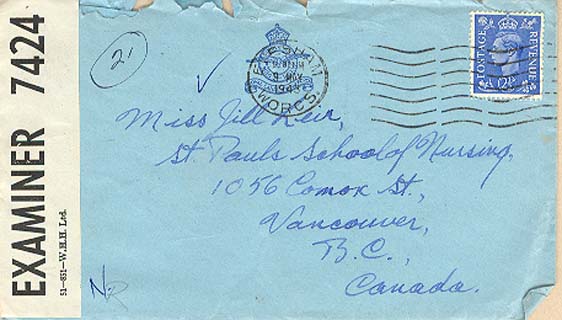 EXAMINER 7424
51-851-W.H.H. Ltd.
21
EVESHAM
WORCS
POSTAGE
REVENUE
Miss Jill
St. Pauls School of Nursing,
1056 Comox St.,
Vancouver,
B.C.,
Canada.
NR